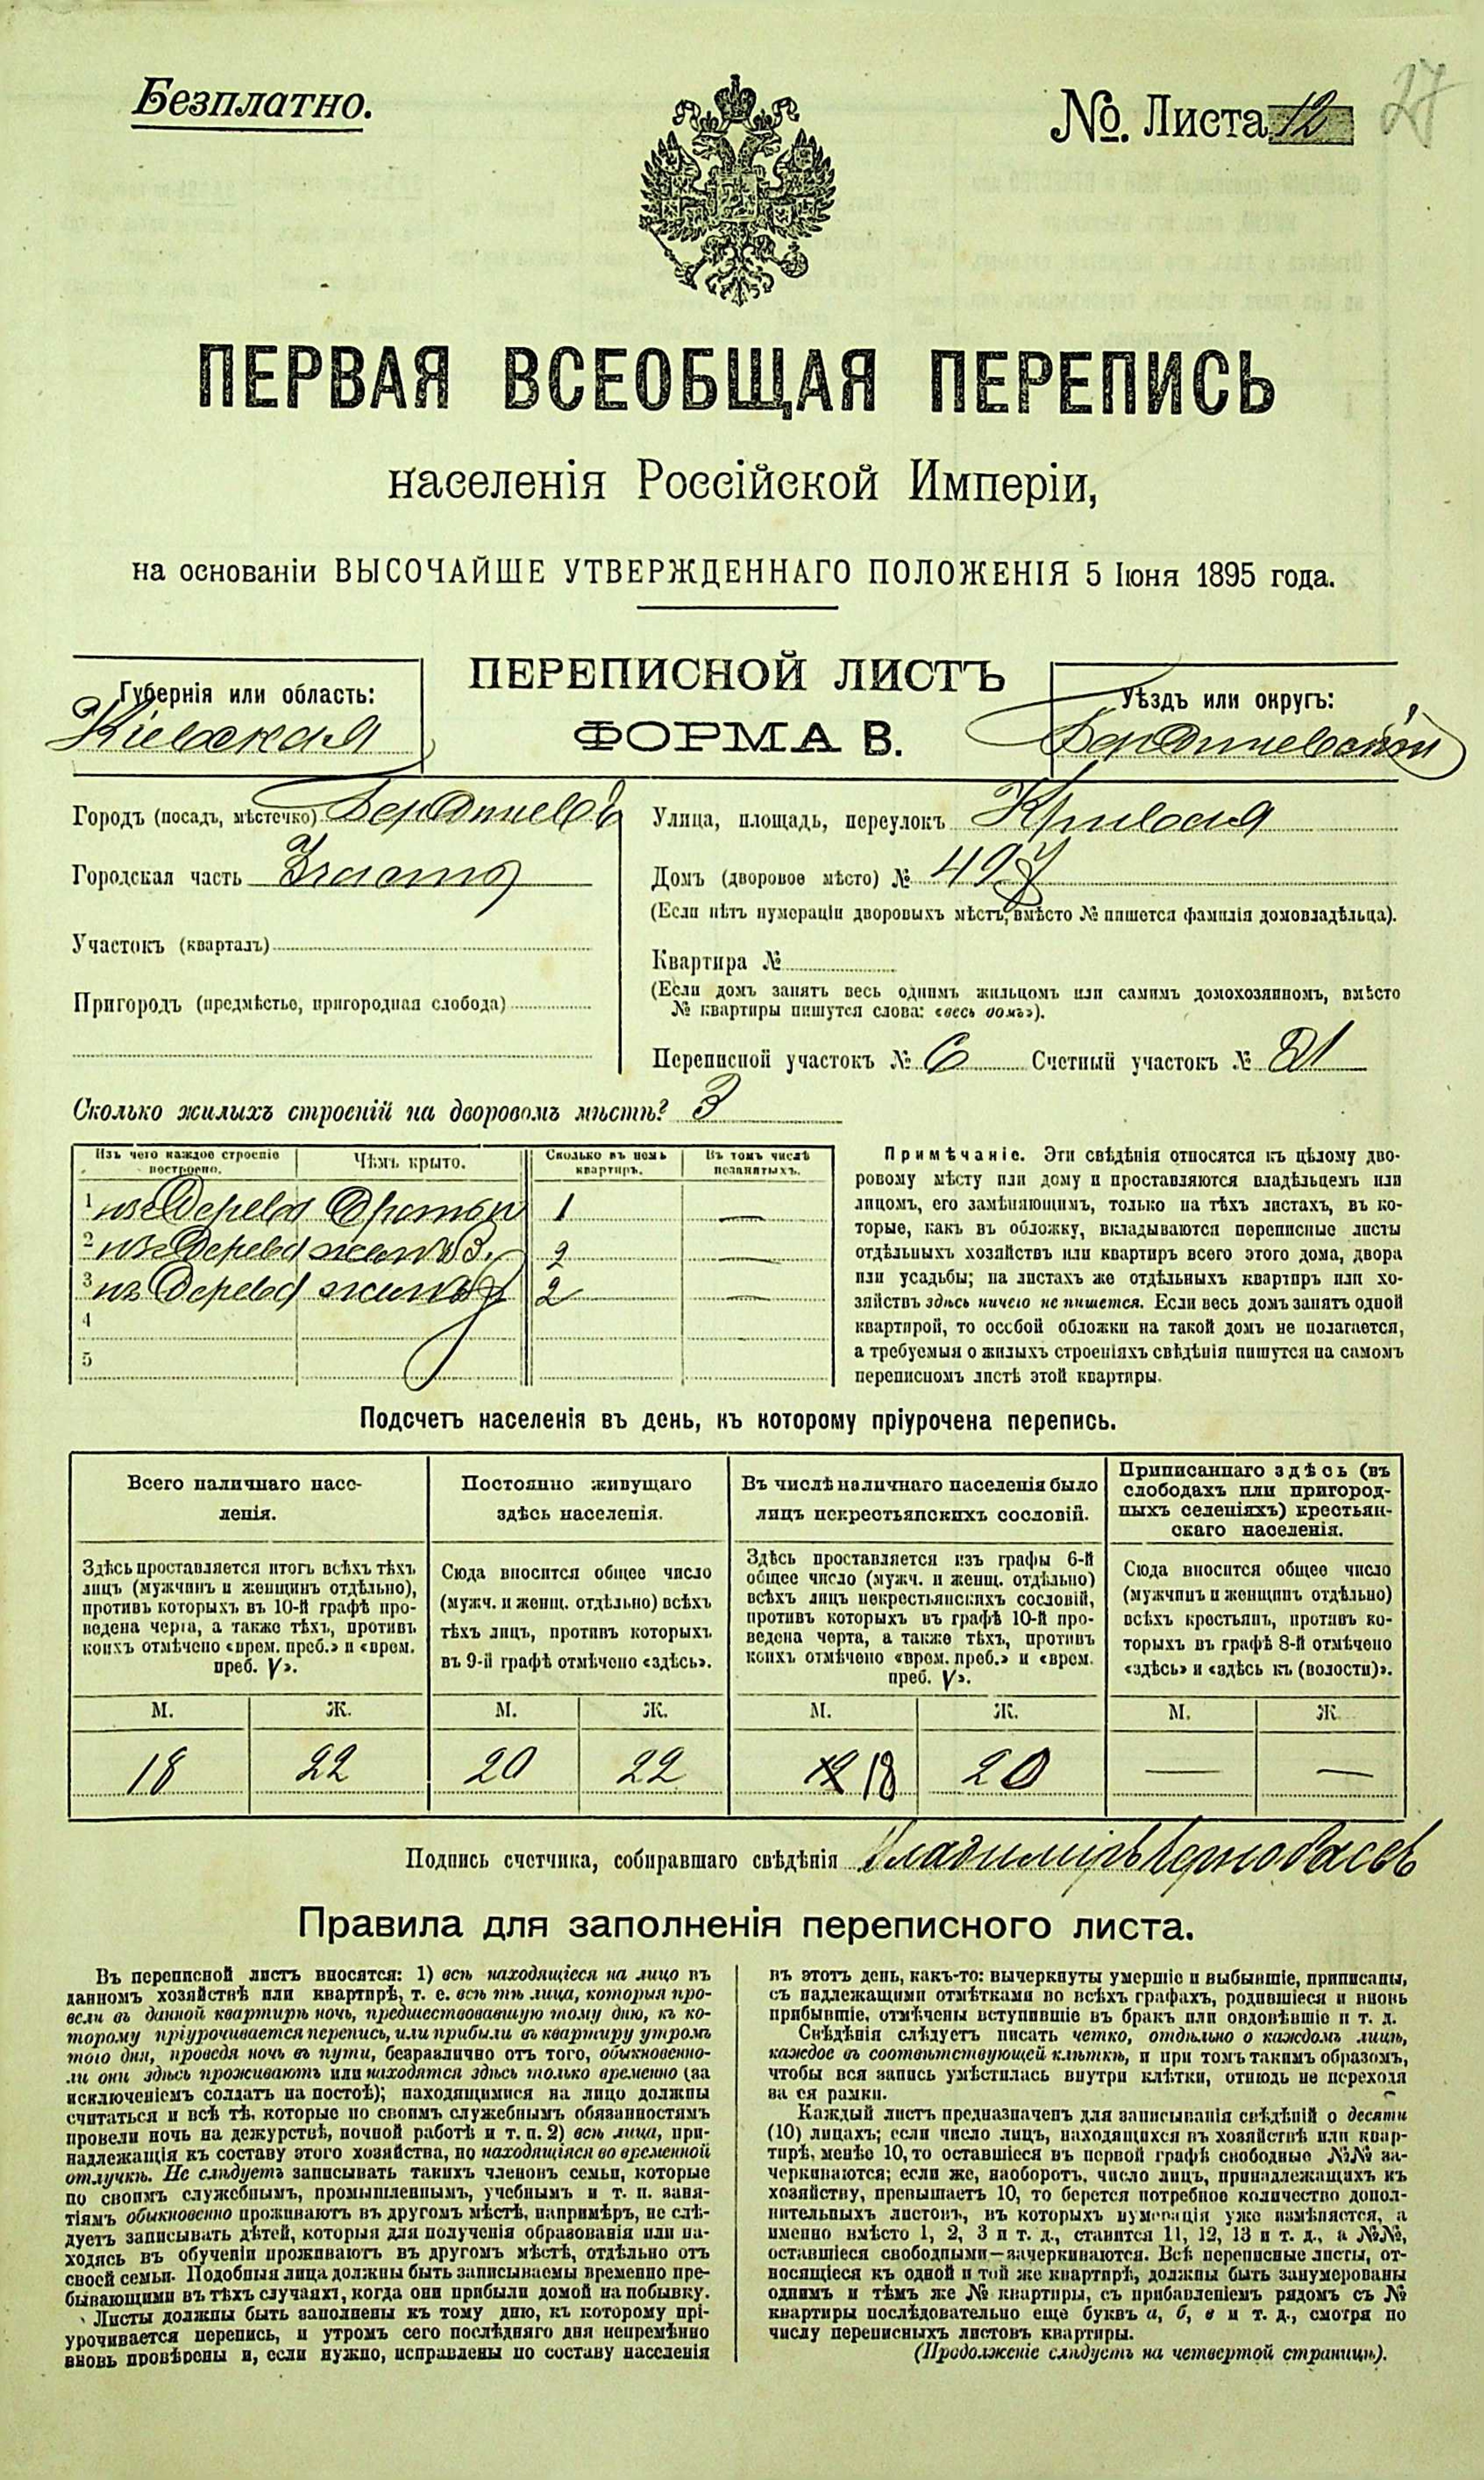 Безплатно.
№. Листа 12
27
ПЕРВАЯ ВСЕОБЩАЯ ПЕРЕПИСЬ
населенія Россійской Имперіи,
на основаніи ВЫСОЧАЙШЕ УТВЕРЖДЕННАГО ПОЛОЖЕНІЯ 5 Іюня 1895 года.
Губернія или область:
Кіевская
ПЕРЕПИСНОЙ ЛИСТЪ
ФОРМА В.
Уѣздъ или округъ:
Бердичевскій
Городъ (посадъ, мѣстечко) Бердичевъ
Городская часть
Участокъ (кварталъ)
Пригородъ (предмѣстье, пригородная слобода)
Улица, площадь, переулокъ Кривая
Домъ (дворовое мѣсто) № 497
(Если нѣтъ нумераціи дворовыхъ мѣстъ, вмѣсто № пишется фамилія домовладѣльца).
Квартира №
(Если домъ занятъ весь однимъ жильцомъ или самимъ домохозяиномъ, вмѣсто
№ квартиры пишутся слова: «весь домъ»).
Переписной участокъ № 6 Счетный участокъ № 21
Сколько жилыхъ строеній на дворовомъ мѣстѣ? 3
Изъ чего каждое строеніе построено.
Чѣмъ крыто.
Сколько въ немъ квартиръ.
Въ томъ числѣ незанятыхъ.
1 изъ дерева 1 —
2 изъ дерева 2 —
3 изъ дерева 2 —
4
5
Примѣчаніе. Эти свѣдѣнія относятся къ цѣлому дво-
ровому мѣсту или дому и проставляются владѣльцемъ или
лицомъ, его замѣняющимъ, только на тѣхъ листахъ, въ ко-
торые, какъ въ обложку, вкладываются переписные листы
отдѣльныхъ хозяйствъ или квартиръ всего этого дома, двора
или усадьбы; на листахъ же отдѣльныхъ квартиръ или хо-
зяйствъ здѣсь ничего не пишется. Если весь домъ занятъ одной
квартирой, то особой обложки на такой домъ не полагается,
а требуемыя о жилыхъ строеніяхъ свѣдѣнія пишутся на самомъ
переписномъ листѣ этой квартиры.
Подсчетъ населенія въ день, къ которому пріурочена перепись.
Всего наличнаго насе-
ленія.
Постоянно живущаго
здѣсь населенія.
Въ числѣ наличнаго населенія было
лицъ некрестьянскихъ сословій.
Приписаннаго здѣсь (въ
слободахъ или пригород-
ныхъ селеніяхъ) крестьян-
скаго населенія.
Здѣсь проставляется итогъ всѣхъ тѣхъ
лицъ (мужчинъ и женщинъ отдѣльно),
противъ которыхъ въ 10-й графѣ про-
ведена черта, а также тѣхъ, противъ
коихъ отмѣчено «врем. преб.» и «врем.
преб. V».
Сюда вносится общее число
(мужч. и женщ. отдѣльно) всѣхъ
тѣхъ лицъ, противъ которыхъ
въ 9-й графѣ отмѣчено «здѣсь».
Здѣсь проставляется изъ графы 6-й
общее число (мужч. и женщ. отдѣльно)
всѣхъ лицъ некрестьянскихъ сословій,
противъ которыхъ въ графѣ 10-й про-
ведена черта, а также тѣхъ, противъ
коихъ отмѣчено «врем. преб.» и «врем.
преб. V».
Сюда вносится общее число
(мужчинъ и женщинъ отдѣльно)
всѣхъ крестьянъ, противъ ко-
торыхъ въ графѣ 8-й отмѣчено
«здѣсь» и «здѣсь къ (волости)».
М. Ж. М. Ж. М. Ж. М. Ж.
18 22 20 22 18 20 — —
Подпись счетчика, собиравшаго свѣдѣнія Владиміръ
Правила для заполненія переписного листа.
Въ переписной листъ вносятся: 1) всѣ находящіеся на лицо въ
данномъ хозяйствѣ или квартирѣ, т. е. всѣ тѣ лица, которыя про-
вели въ данной квартирѣ ночь, предшествовавшую тому дню, къ ко-
торому пріурочивается перепись, или прибыли въ квартиру утромъ
того дня, проведя ночь въ пути, безразлично отъ того, обыкновенно-
ли они здѣсь проживаютъ или находятся здѣсь только временно (за
исключеніемъ солдатъ на постоѣ); находящимися на лицо должны
считаться и всѣ тѣ, которые по своимъ служебнымъ обязанностямъ
провели ночь на дежурствѣ, ночной работѣ и т. п. 2) всѣ лица, при-
надлежащія къ составу этого хозяйства, но находящіяся во временной
отлучкѣ. Не слѣдуетъ записывать такихъ членовъ семьи, которые
по своимъ служебнымъ, промышленнымъ, учебнымъ и т. п. заня-
тіямъ обыкновенно проживаютъ въ другомъ мѣстѣ, напримѣръ, не слѣ-
дуетъ записывать дѣтей, которыя для полученія образованія или на-
ходясь въ обученіи проживаютъ въ другомъ мѣстѣ, отдѣльно отъ
своей семьи. Подобныя лица должны быть записываемы временно пре-
бывающими въ тѣхъ случаяхъ, когда они прибыли домой на побывку.
Листы должны быть заполнены къ тому дню, къ которому прі-
урочивается перепись, и утромъ сего послѣдняго дня непремѣнно
вновь провѣрены и, если нужно, исправлены по составу населенія
въ этотъ день, какъ-то: вычеркнуты умершіе и выбывшіе, приписаны,
съ надлежащими отмѣтками во всѣхъ графахъ, родившіеся и вновь
прибывшіе, отмѣчены вступившіе въ бракъ или овдовѣвшіе и т. д.
Свѣдѣнія слѣдуетъ писать четко, отдѣльно о каждомъ лицѣ,
каждое въ соотвѣтствующей клѣткѣ, и при томъ такимъ образомъ,
чтобы вся запись умѣстилась внутри клѣтки, отнюдь не переходя
за ея рамки.
Каждый листъ предназначенъ для записыванія свѣдѣній о десяти
(10) лицахъ; если число лицъ, находящихся въ хозяйствѣ или квар-
тирѣ, менѣе 10, то оставшіеся въ первой графѣ свободные №№ за-
черкиваются; если же, наоборотъ, число лицъ, принадлежащихъ къ
хозяйству, превышаетъ 10, то берется потребное количество допол-
нительныхъ листовъ, въ которыхъ нумерація уже измѣняется, а
именно вмѣсто 1, 2, 3 и т. д., ставится 11, 12, 13 и т. д., а №№,
оставшіеся свободными—зачеркиваются. Всѣ переписные листы, от-
носящіеся къ одной и той же квартирѣ, должны быть занумерованы
однимъ и тѣмъ же № квартиры, съ прибавленіемъ рядомъ съ №
квартиры послѣдовательно еще буквъ а, б, в и т. д., смотря по
числу переписныхъ листовъ квартиры.
(Продолженіе слѣдуетъ на четвертой страницѣ).